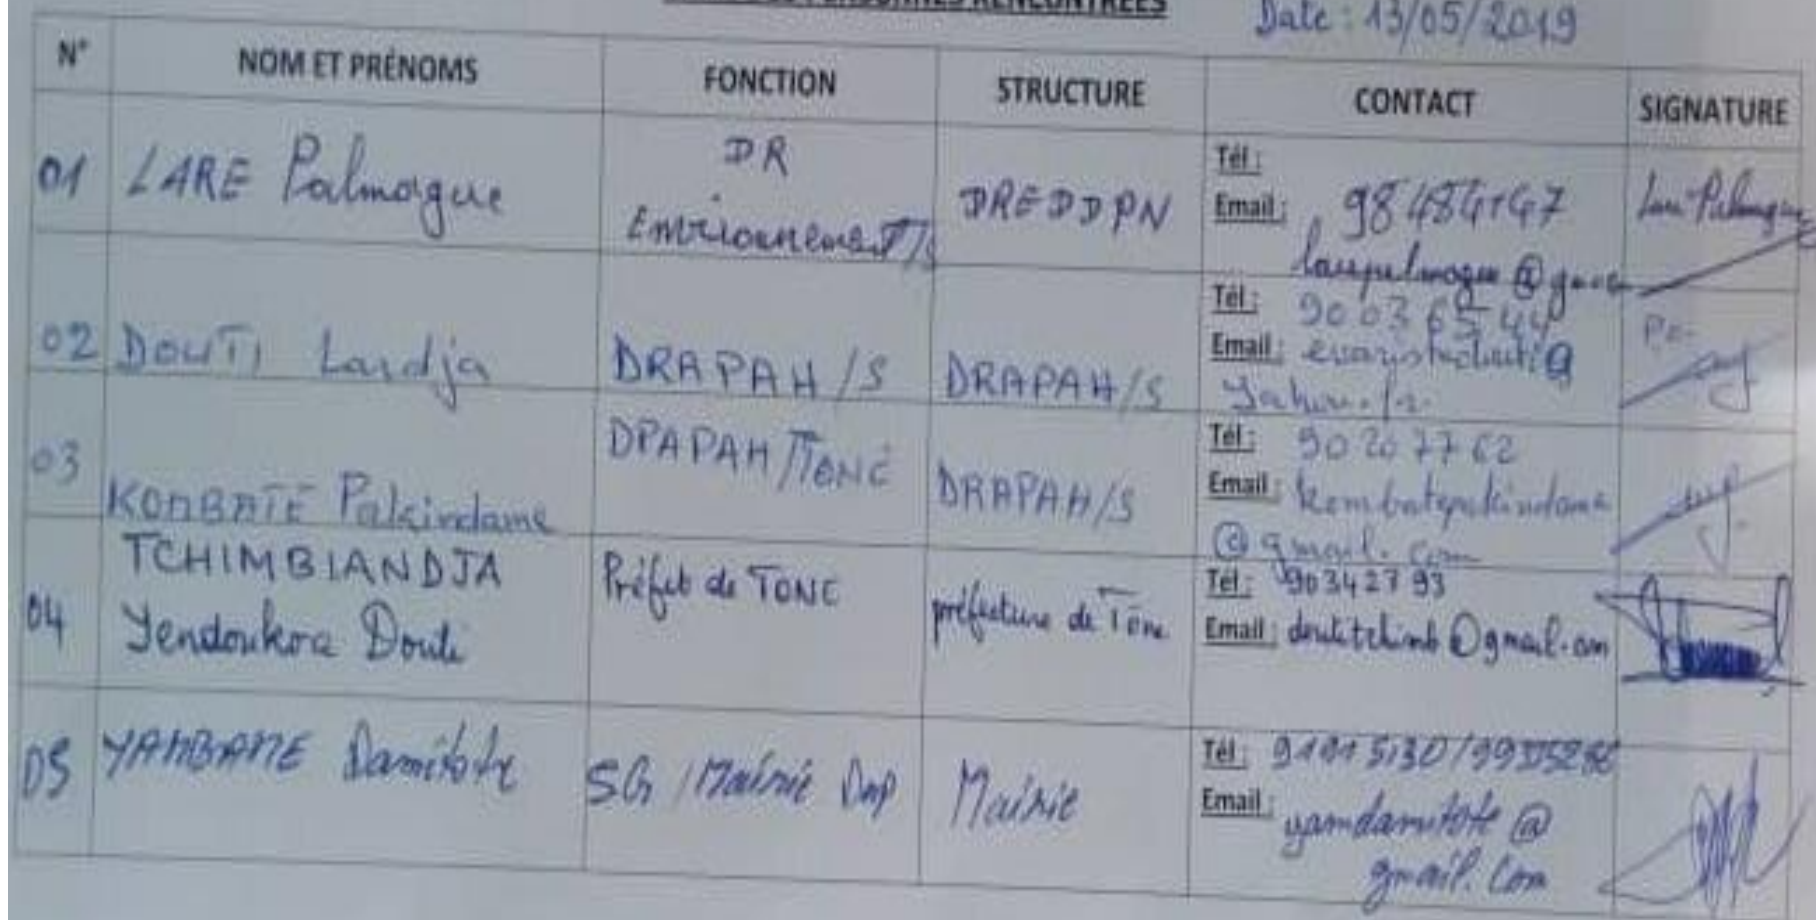 PERSONNES RENCONTRÉES
Date : 13/05/2019
N° NOM ET PRÉNOMS FONCTION STRUCTURE CONTACT SIGNATURE
01 LARE Palmogue DR Environnement/S DREDDPN Tél :
Email :
02 DOUTI Lardja DRAPAH/S DRAPAH/S Tél : 90 03 65 44
Email :
03 KOMBATE Pakindame DPAPAH/TONE DRAPAH/S Tél : 90 20 77 62
Email : kombatepakindame
@gmail.com
04 TCHIMBIANDJA
Yendoukoa Douti Préfet de TONE préfecture de Tône Tél : 90342793
Email : doutitchimb@gmail.com
05 YAMBANE Damitote SG /Mairie Dap Mairie Tél : 91915130/
Email : yamdamitote @
gmail.com